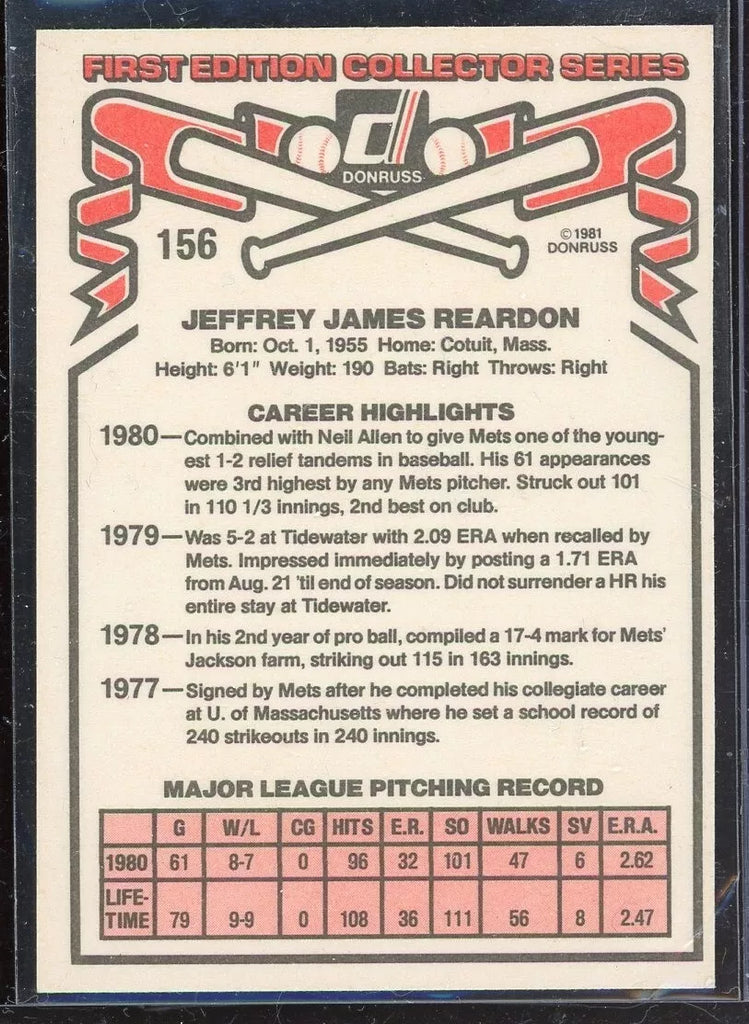 FIRST EDITION COLLECTOR SERIES
d
DONRUSS
156
©1981
DONRUSS
JEFFREY JAMES REARDON
Born: Oct. 1, 1955 Home: Cotuit, Mass.
Height: 6'1" Weight: 190 Bats: Right Throws: Right
CAREER HIGHLIGHTS
1980—Combined with Neil Allen to give Mets one of the young-
est 1-2 relief tandems in baseball. His 61 appearances
were 3rd highest by any Mets pitcher. Struck out 101
in 110 1/3 innings, 2nd best on club.
1979—Was 5-2 at Tidewater with 2.09 ERA when recalled by
Mets. Impressed immediately by posting a 1.71 ERA
from Aug. 21 'til end of season. Did not surrender a HR his
entire stay at Tidewater.
1978—In his 2nd year of pro ball, compiled a 17-4 mark for Mets'
Jackson farm, striking out 115 in 163 innings.
1977—Signed by Mets after he completed his collegiate career
at U. of Massachusetts where he set a school record of
240 strikeouts in 240 innings.
MAJOR LEAGUE PITCHING RECORD
G W/L CG HITS E.R. SO WALKS SV E.R.A.
1980 61 8-7 0 96 32 101 47 6 2.62
LIFE-
TIME 79 9-9 0 108 36 111 56 8 2.47